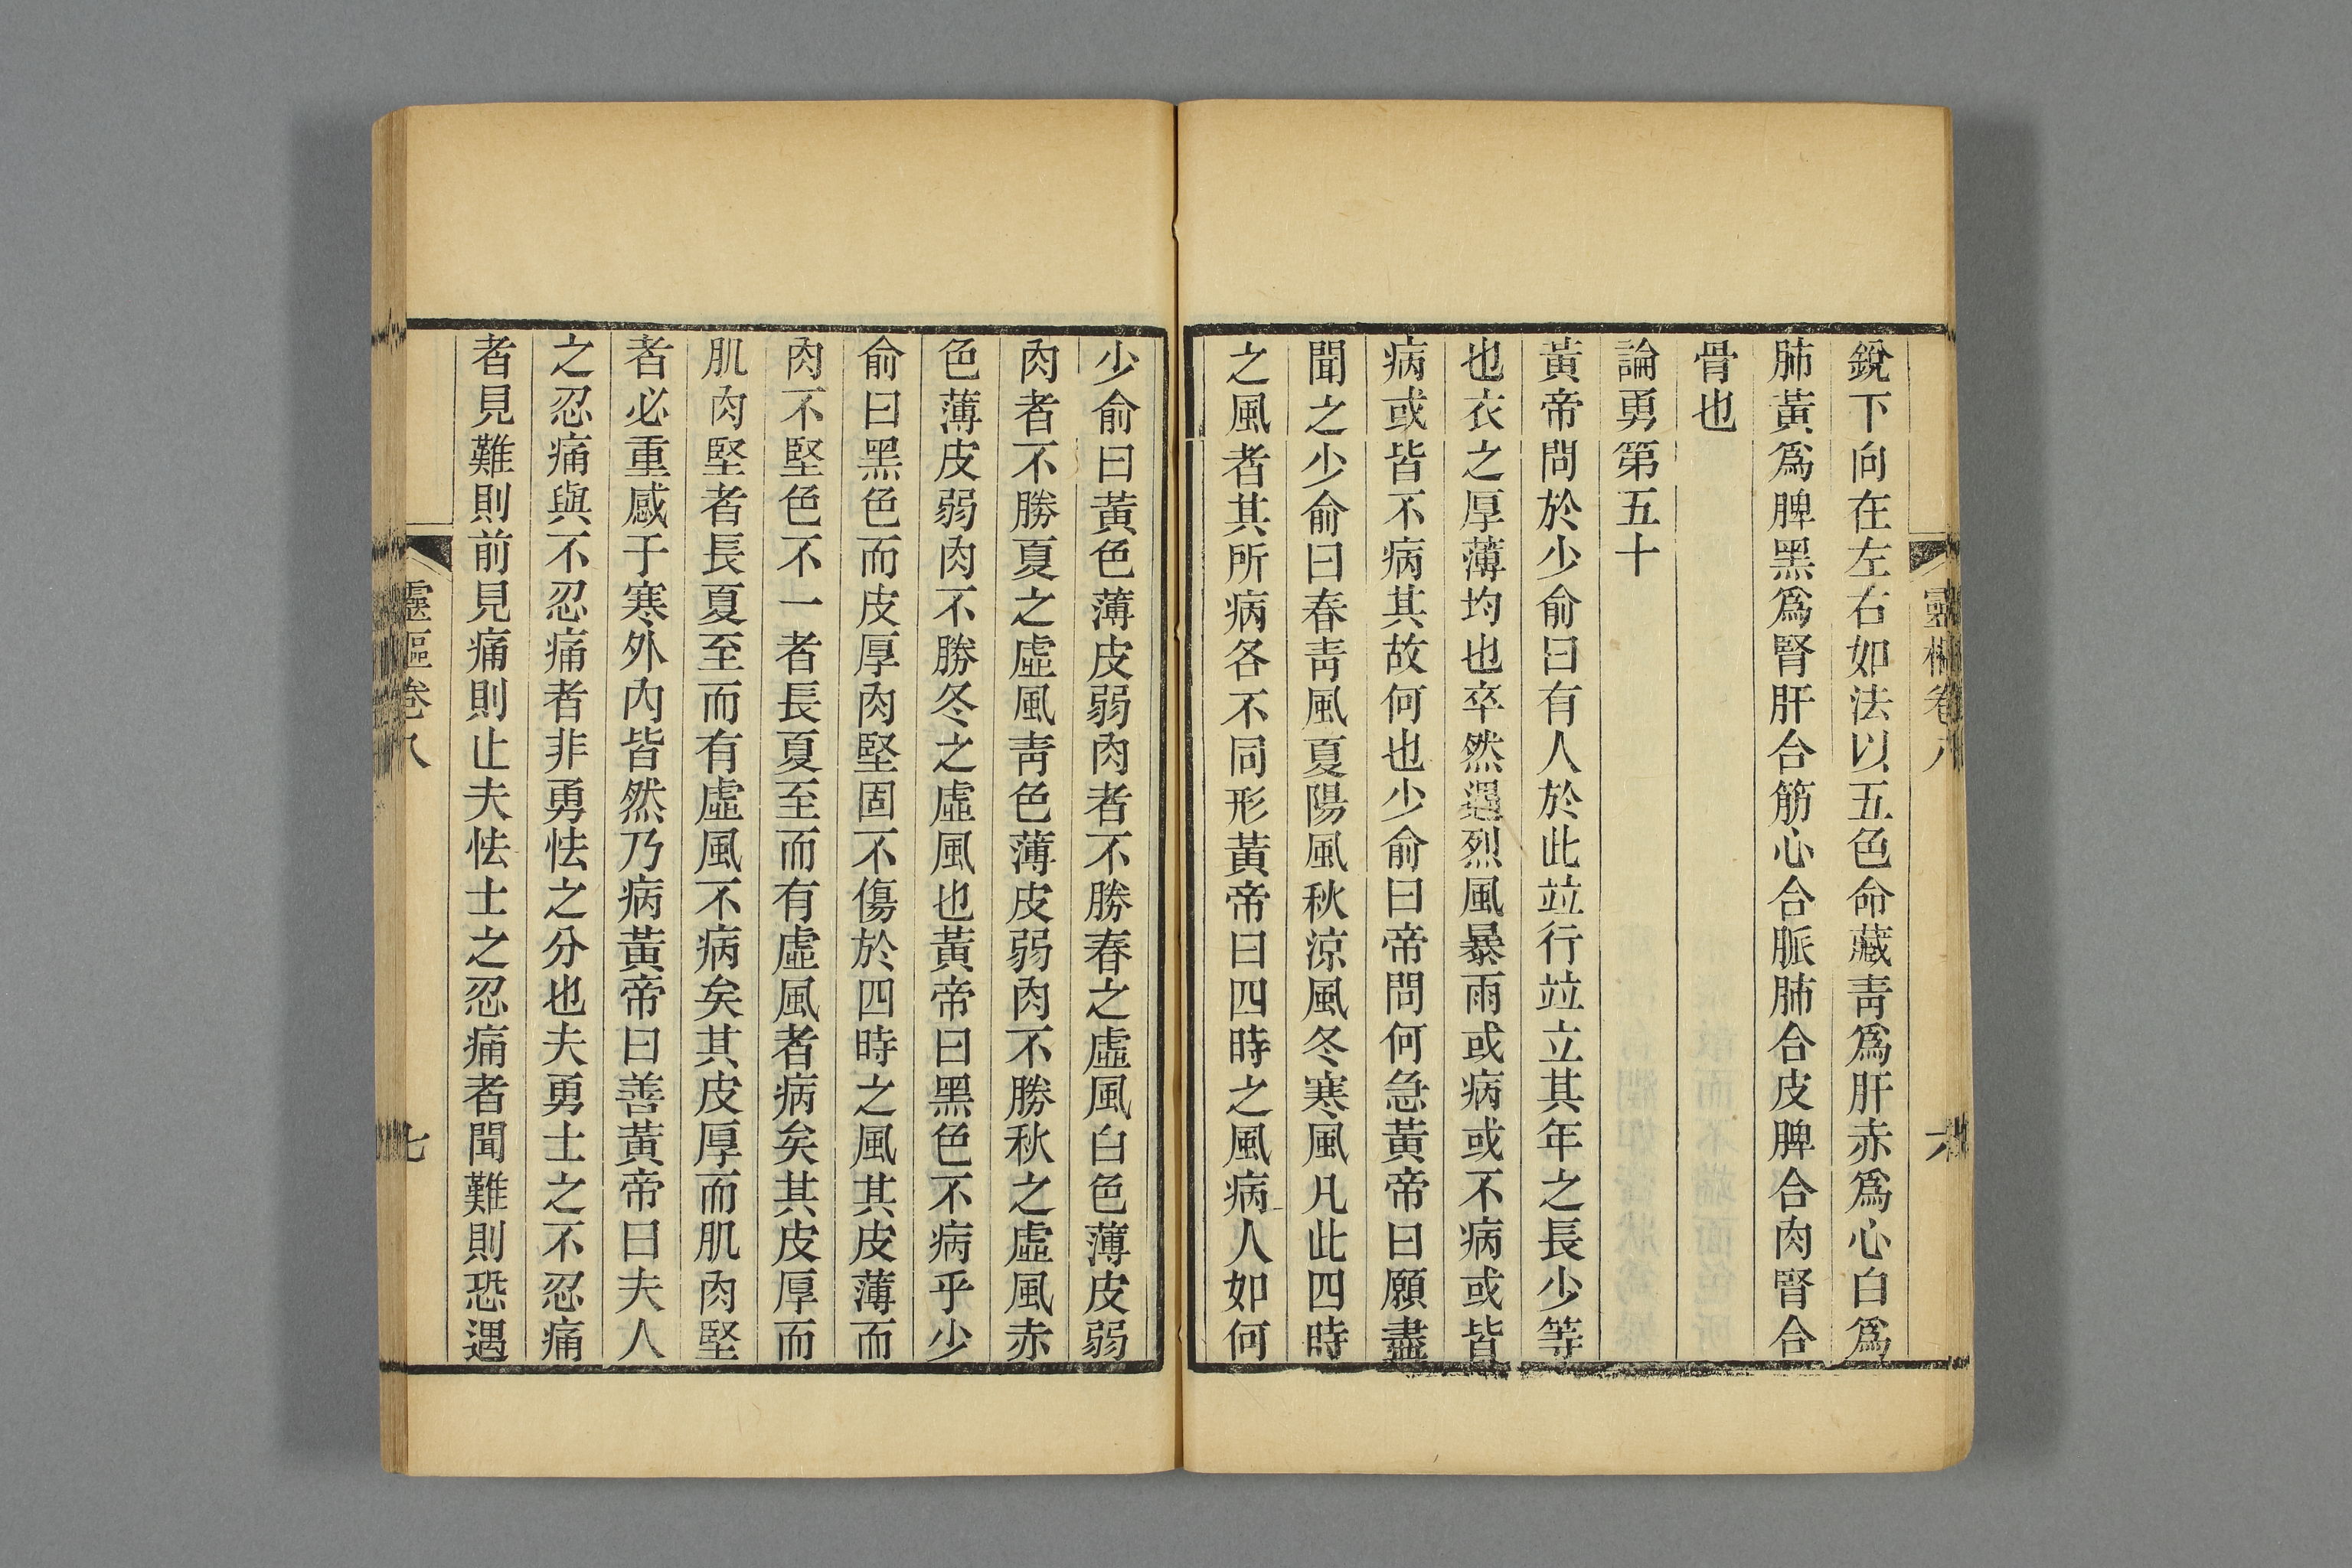 靈樞卷八
六
銳下向在左右如法以五色命藏靑爲肝赤爲心白爲
肺黃爲脾黑爲腎肝合筋心合脈肺合皮脾合肉腎合
骨也
論勇第五十
黃帝問於少俞曰有人於此竝行竝立其年之長少等
也衣之厚薄均也卒然遇烈風暴雨或病或不病或皆
病或皆不病其故何也少俞曰帝問何急黃帝曰願盡
聞之少俞曰春靑風夏陽風秋涼風冬寒風凡此四時
之風者其所病各不同形黃帝曰四時之風病人如何
少俞曰黃色薄皮弱肉者不勝春之虛風白色薄皮弱
肉者不勝夏之虛風靑色薄皮弱肉不勝秋之虛風赤
色薄皮弱肉不勝冬之虛風也黃帝曰黑色不病乎少
俞曰黑色而皮厚肉堅固不傷於四時之風其皮薄而
肉不堅色不一者長夏至而有虛風者病矣其皮厚而
肌肉堅者長夏至而有虛風不病矣其皮厚而肌肉堅
者必重感于寒外內皆然乃病黃帝曰善黃帝曰夫人
之忍痛與不忍痛者非勇怯之分也夫勇士之不忍痛
者見難則前見痛則止夫怯士之忍痛者聞難則恐遇
靈樞卷八
七